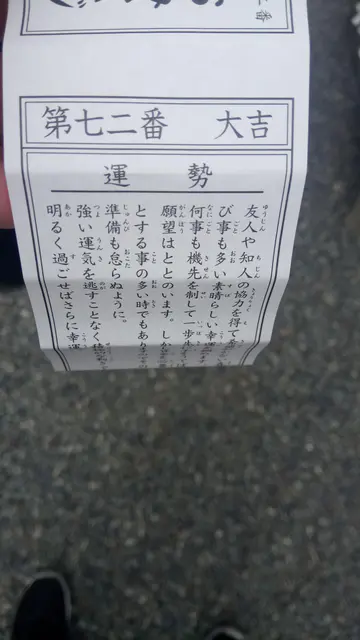 番
第七二番 大吉
運勢
友人や知人の協力を得て
び事も多い素晴らしい幸運
何事も機先を制して一歩
願望はととのいます。しか
とする事の多い時でもあり
準備も怠らぬように。
強い運気を逃すことなく
明るく過ごせばさらに幸運